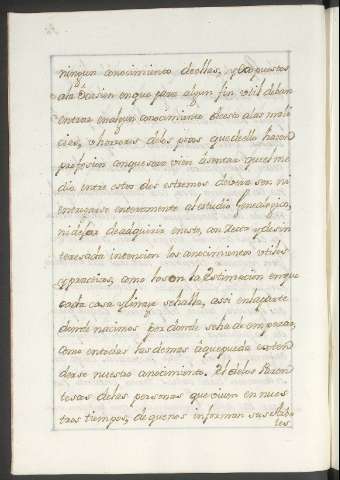 ningun conocimiento deellas, y expuestos
ala ocasion enque para algun fin util deban
entrar enalgun conocimiento
cies, u horrores delos que deello hacen
profesion conque sera vien asentar que el me
dio entre estos dos estremos devera ser ni
entregarse enteramente al estudio Genealogico,
ni dejar deadquirir eneste, con decoro y desin
teresada intencion los conocimientos utiles
y practicos, como los en la Estimacion enque
cada casa y linage se halla, assi enlaparte
donde nacimos por donde se ha de empezar,
como entodas las demas aque pueda exten
derse nuestro conocimiento. El delos Paren
tescos delas personas que viven en nues
tros tiempos, de que nos informan sus Arbo
les,